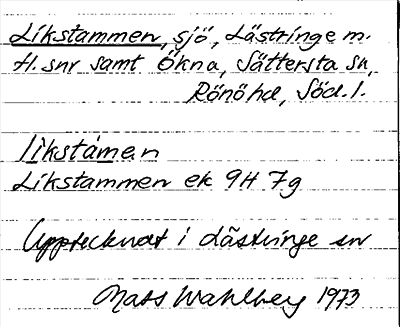 Likstammen, sjö, Lästringe m.
fl. snr samt Ökna, Sättersta sn,
Rönö hd, Söd. l.
likstámen
Likstammen ek 9H 7g
Upptecknat i Lästringe sn
Mats Wahlberg 1973